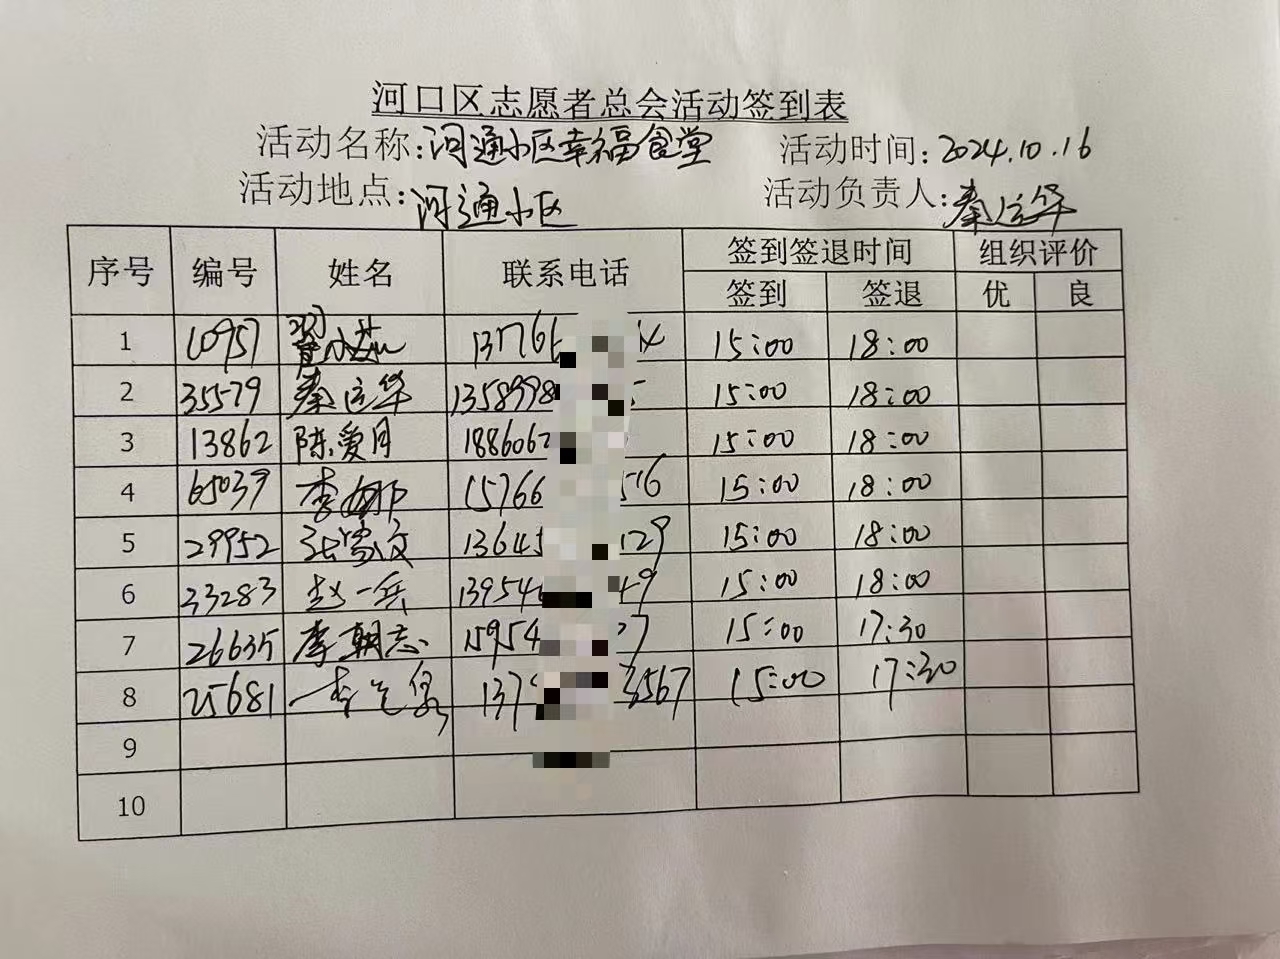 河口区志愿者总会活动签到表
活动名称:河通小区幸福食堂 活动时间:2024.10.16
活动地点:河通小区 活动负责人:秦运华
序号 编号 姓名 联系电话 签到签退时间 组织评价
签到 签退 优 良
1 10957 13766 4 15:00 18:00
2 35579 秦运华 1358998 15:00 18:00
3 13862 陈爱月 1886062 15:00 18:00
4 65039 李娜 15766 516 15:00 18:00
5 29952 文 13645 129 15:00 18:00
6 33283 赵一兵 13954 49 15:00 18:00
7 26635 李朝志 15954 7 15:00 17:30
8 25681 李 137 3567 15:00 17:30
9
10